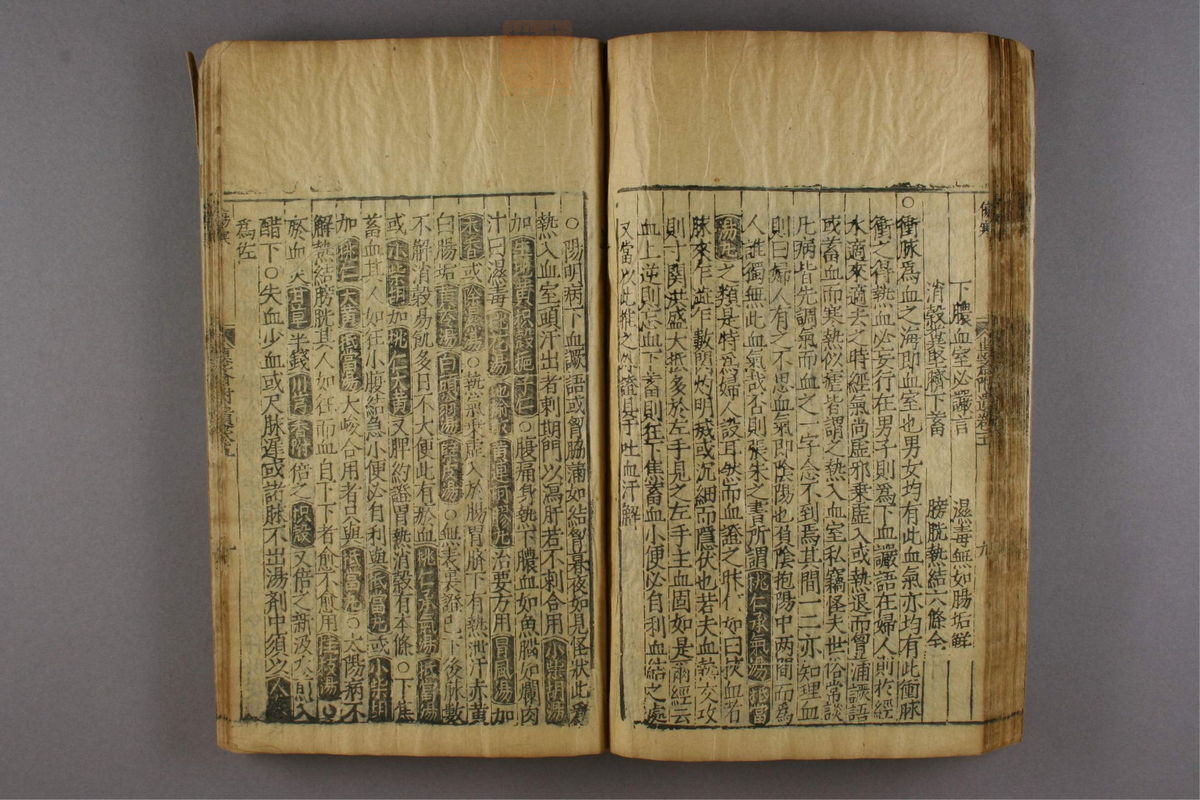 下膿血室必讝言　濕毒無如腸垢鮮
消穀㽲　臍下蓄　膀胱熱結六條全
○衝脉爲血之海即血室也男女均有此血氣亦均有此衝脉
衝之得熱血必妄行在男子則爲下血讝語在婦人則於經
水適來適去之時經氣尚虛邪乗虛入或熱退而曾滿讝語
或蓄血而寒熱似瘧皆謂之熱入血室私竊怪夫世俗常談
凡病皆先調氣而血之一字念不到焉其間一二亦知理血
則曰婦人有之不思血氣即陰陽也負陰抱陽中两間而爲
人誰獨無此血氣哉否則張朱之書所謂桃仁承氣湯抵當
湯丸之類是特爲婦人設耳然而血證之脉 如曰挾血者
脉來乍 乍數關灼明或沉細而隱伏也若夫血熱交攻
則寸關洪盛大抵多於左手見之左手主血固如是爾經云
血上逆則忘血下蓄則狂下焦蓄血小便必自利血結之處
又當以此推之 證見乎吐血汗解
○陽明病下血讝語或曾脇滿如結曾暮夜如見怪狀此爲
熱入血室頭汗出者刺期門以瀉肝若不刺合用小柴胡湯
加生地黄枳殼梔子仁○腹痛身熱下膿血如魚腦如爛肉
汁曰濕毒桃花湯地榆散黄連阿膠丸治要方用胃風湯加
木香或 濕湯○熱氣乗虛入於腸胃臍下有熱泄汗赤黄
曰腸垢黄芩湯白頭翁湯蘗皮湯○無表裏證已下後脉數
不解消穀易飢多日不大便此有瘀血桃仁承氣湯抵當湯
或小柴胡加桃仁大黄又脾約證胃熱消穀有本條○下焦
蓄血其人如狂小腹結急小便必自利與抵當丸或小柴胡
加桃仁大黄抵當湯大峻合用者只與抵當丸○太陽病不
解熱結膀胱其人如狂而血自下下者愈不愈用桂枝湯
瘀血 甘草半錢川芎 倍之枳殼又倍之新汲 煎入
醋下○失血少血或尺脉遲或諸脉不出湯劑中須以人參
爲佐
傷寒
傷寒
九
九